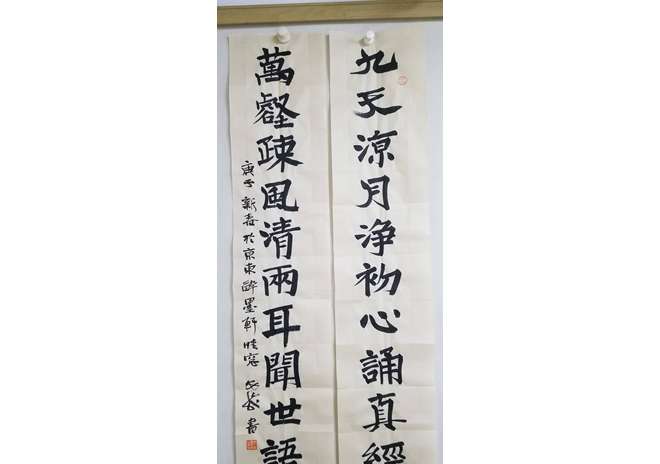 九天凉月浄初心誦真經
萬壑疎風清兩耳聞世語
庚子新春於京東醉墨軒晴窓
書